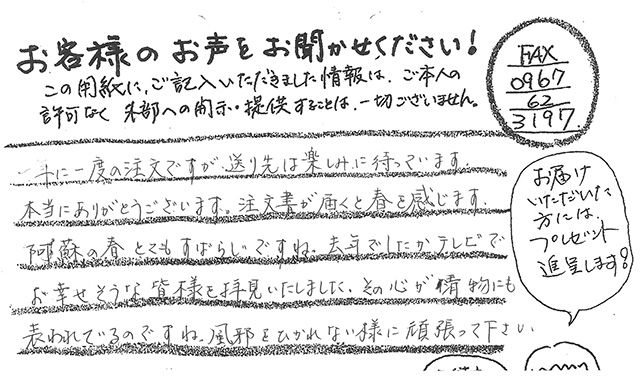 お客様のお声をお聞かせください!
この用紙に、ご記入いただきました情報は、ご本人の
許可なく 外部への開示・提供することは、一切ございません。
FAX
0967
62
3197
一年に一度の注文ですが、送り先は楽しみに待っています。
本当にありがとうございます。注文書が届くと春を感じます。
阿蘇の春とてもすばらしいですね。去年でしたかテレビで
お幸せそうな皆様を拝見いたしました、その心が漬物にも
表われているのですね。風邪をひかれない様に頑張って下さい
お届け
いただいた
方には、
プレゼント
進呈します!